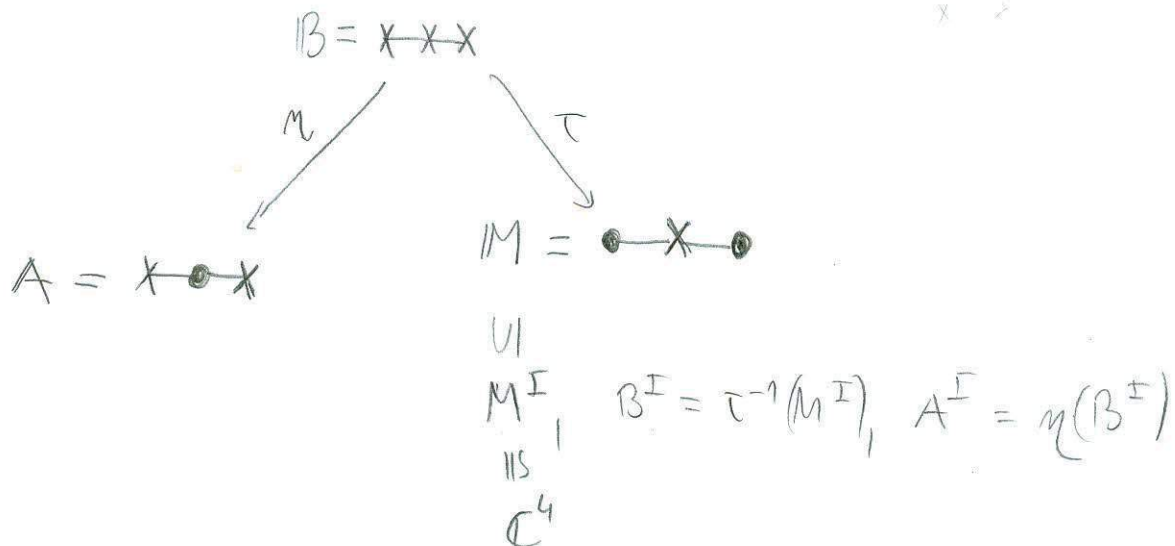 𝔹 = ×–×–×
η τ
𝔸 = ×–●–× 𝕄 = ●–×–●
∪|
M^I, B^I = τ^{-1}(M^I), A^I = η(B^I)
≀∥
ℂ^4